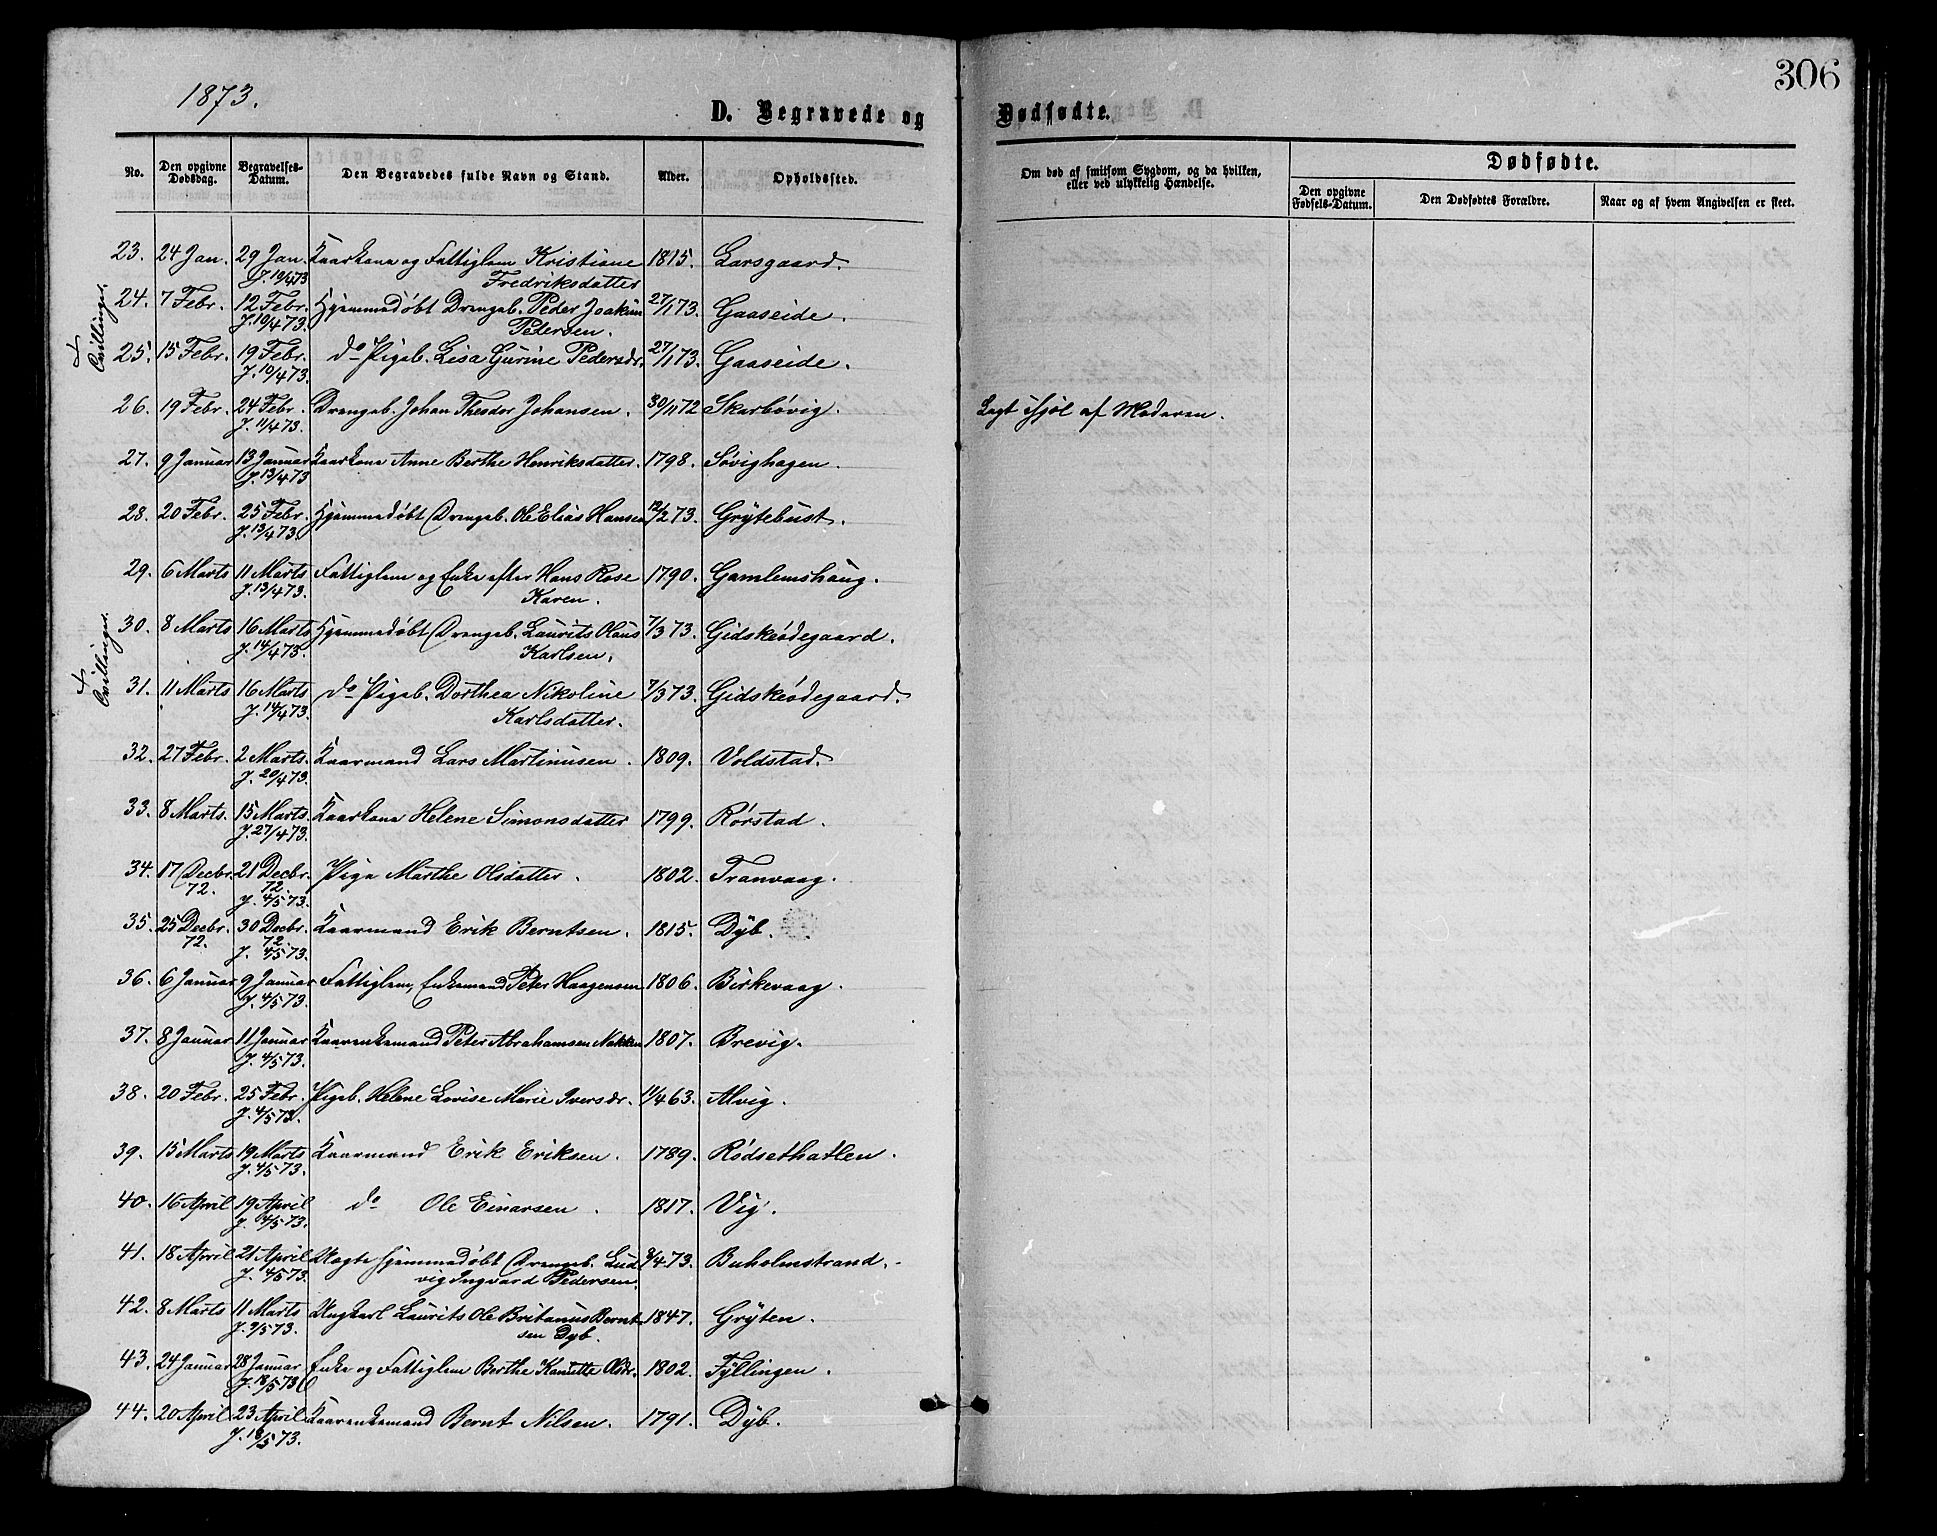 306
1873.
D. Begravede og Dødfødte.
No. Den opgivne Dødsdag. Begravelses-Datum. Den Begravedes fulde Navn og Stand. Alder. Opholdssted. Om død af smitsom Sygdom, og da hvilken, eller ved ulykkelig Hændelse. Dødfødte.
Den opgivne Fødsels-Datum. Den Dødfødtes Forældre. Naar og af hvem Angivelsen er skeet.
23. 24 Jan. 29 Jan. Kaarkone og Fattiglem Kristiane 1815. Larsgaard.
J. 10/4 73 Fredriksdatter
24. 7 Febr. 12 Febr. Hjemmedøbt Drengeb. Peder Joakim 27/1 73. Gaaseide.
J. 10/4 73. Petersen.
+ Tvillinger.
25. 15 Febr. 19 Febr. do Pigeb. Lisa Gurine Pedersdr. 27/1 73. Gaaseide.
J. 10/4 73.
26. 19 Febr. 24 Febr. Drengeb. Johan Theodor Johansen. 30/11 72 Skarbøvig. Lagt ihjel af Moderen.
J. 11/4 73.
27. 9 Januar 13 Januar Kaarkone Anne Berthe Henriksdatter. 1798. Søvighagen.
J. 13/4 73
28. 20 Febr. 25 Febr. Hjemmedøbt Drengeb. Ole Elias Hansen 12/2 73. Grytebust.
J. 13/4 73.
29. 6 Marts 11 Marts Fattiglem og Enke efter Hans Rose 1790. Gamlemshaug.
J. 13/4 73. Karen.
30. 8 Marts 16 Marts Hjemmedøbt Drengeb. Laurits Olaus 7/3 73. Gidskeødegaard.
J. 14/4 73. Karlsen.
+ Tvillinger.
31. 11 Marts 16 Marts do Pigeb. Dorthea Nikoline 7/3 73. Gidskeødegaard.
J. 14/4 73. Karlsdatter.
32. 27 Febr. 2 Marts. Kaarmand Lars Martinusen. 1809. Voldstad.
J. 20/4 73.
33. 8 Marts. 15 Marts. Kaarkone Helene Simonsdatter 1799. Rørstad.
J. 27/4 73.
34. 17 Decbr. 21 Decbr. Pige Marthe Olsdatter. 1802. Tranvaag.
72. 72.
J. 4/5 73.
35. 25 Decbr. 30 Decbr. Kaarmand Erik Berntsen. 1815. Dyb.
72. 72.
J. 4/5 73.
36. 6 Januar 9 Januar Fattiglem, Enkemand Peter Haagensen 1806. Birkevaag.
J. 4/5 73.
37. 8 Januar 11 Januar Kaarenkemand Peter Abrahamsen Nakken 1807. Brevig.
J. 4/5 73.
38. 20 Febr. 25 Febr. Pigeb. Helene Lovise Marie Iversdr. 11/4 63. Alvig.
J. 4/5 73.
39. 15 Marts 19 Marts Kaarmand Erik Eriksen. 1789. Rødsethatlen.
J. 4/5 73.
40. 16 April 19 April do Ole Einarsen. 1817. Vig.
J. 4/5 73.
41. 18 April 21 April Uægte hjemmedøbt Drengeb. Lud- 8/4 73. Buholmstrand.
J. 4/5 73. vig Ingvard Pedersen.
42. 8 Marts 11 Marts Ungkarl Laurits Ole Britanus Bernt- 1847. Gryten.
J. 9/5 73. sen Dyb.
43. 24 Januar 28 Januar Enke og Fattiglem Berthe Kanutte Olsdr. 1802. Fyllingen.
J. 18/5 73
44. 20 April 23 April Kaarenkemand Bernt Nilsen. 1791. Dyb.
J. 18/5 73.